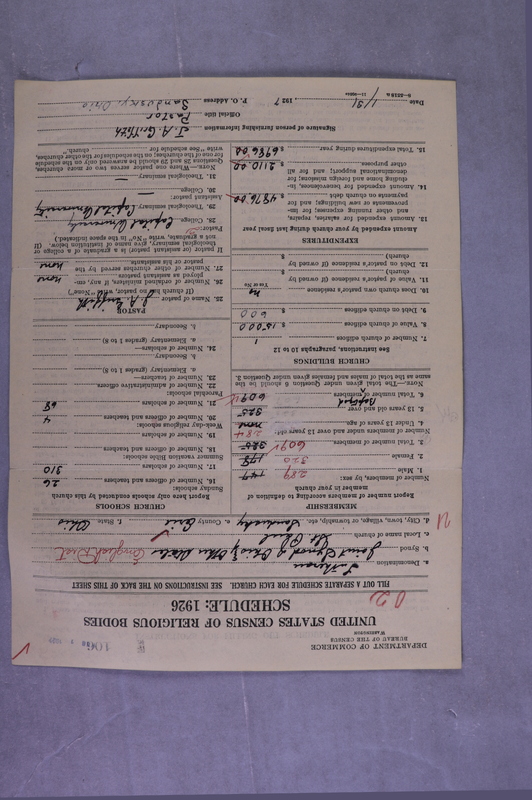 DEPARTMENT OF COMMERCE
BUREAU OF THE CENSUS
WASHINGTON
UNITED STATES CENSUS OF RELIGIOUS BODIES
SCHEDULE: 1926
FILL OUT A SEPARATE SCHEDULE FOR EACH CHURCH. SEE INSTRUCTIONS ON THE BACK OF THIS SHEET
a. Denomination Lutheran
b. Synod Joint Synod of Ohio & Other States English Dist.
c. Local name of church St Paul
d. City, town, village, or township, etc. Sandusky e. County Erie f. State Ohio
MEMBERSHIP
Report number of members according to definition of member in your church
Number of members, by sex:
1. Male 147 289
2. Female 178 320
3. Total number of members 325 609
Number of members under and over 13 years old:
4. Under 13 years of age none 284
5. 13 years old and over 325
6. Total number of Baptized members 609
NOTE.—The total given under Question 6 should be the same as the total of males and females given under Question 3.
CHURCH BUILDINGS
See instructions, paragraphs 10 to 12
7. Number of church edifices 1
8. Value of church edifices $ 15000
9. Debt on church edifices $ 600
10. Does church own pastor's residence no
Yes or No
11. Value of pastor's residence (if owned by church) $
12. Debt on pastor's residence (if owned by church) $
EXPENDITURES
Amount expended by your church during last fiscal year
13. Amount expended for salaries, repairs, and other running expenses; for improvements or new building; and for payments on church debt $ 4876.00
14. Amount expended for benevolences, including home and foreign missions; for denominational support; and for all other purposes $ 2110.00
15. Total expenditures during year $ 6986.00
CHURCH SCHOOLS
Report here only schools conducted by this church
Sunday schools:
16. Number of officers and teachers 26
17. Number of scholars 310
Summer vacation Bible schools:
18. Number of officers and teachers
19. Number of scholars
Week-day religious schools:
20. Number of officers and teachers 4
21. Number of scholars 68
Parochial schools:
22. Number of administrative officers
23. Number of teachers—
a. Elementary (grades 1 to 8)
b. Secondary
24. Number of scholars—
a. Elementary (grades 1 to 8)
b. Secondary
PASTOR
25. Name of pastor J. A. Griffith
(If church has no pastor, write "None")
26. Number of other ministers, if any, employed as assistant pastors none
27. Number of other churches served by the pastor or his assistants none
If pastor (or assistant) is a graduate of a college or theological seminary, give name of institution below. (If not a graduate, write "No" in the space indicated.)
Pastor:
28. College Capital University
29. Theological seminary Capital University
Assistant pastor:
30. College
31. Theological seminary
NOTE.—Where one pastor serves two or more churches, Questions 28 and 29 should be answered only on the schedule for one of the churches; on the schedules for the other churches, write "See schedule for church."
Signature of person furnishing information J. A. Griffith
Official title Pastor
Date 1/31 1927 P. O. Address Sandusky, Ohio